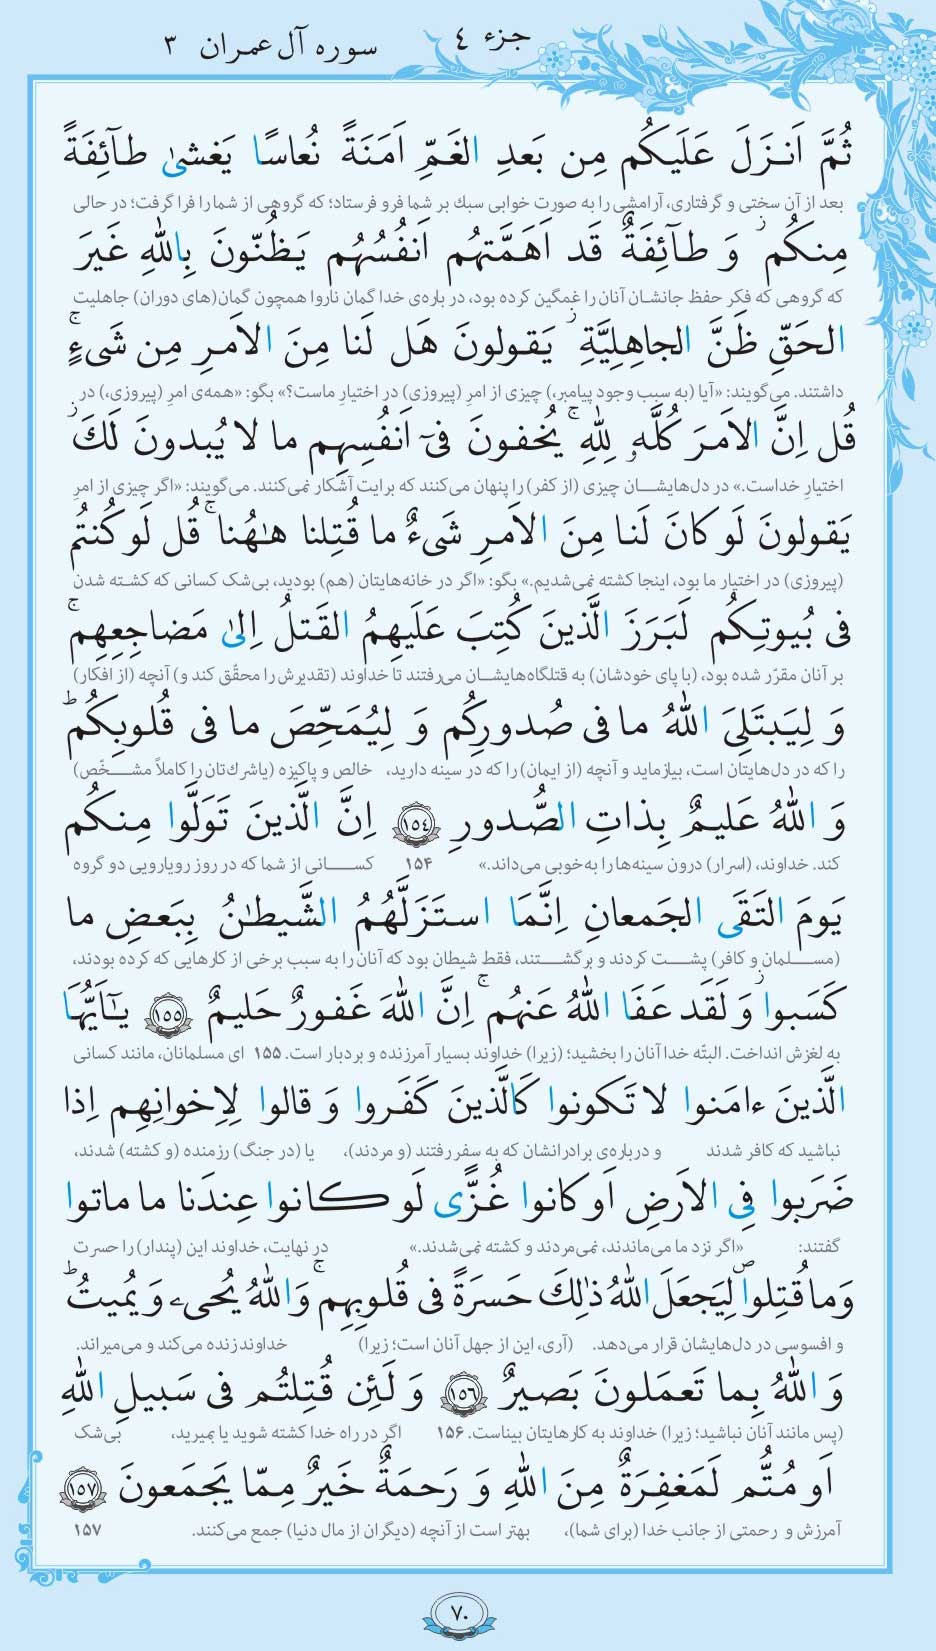 جزء ٤
سوره آل عمران ٣
ثُمَّ اَنزَلَ عَلَيكُم مِن بَعدِ الغَمِّ اَمَنَةً نُعاسًا يَغشىٰ طآئِفَةً
بعد از آن سختی و گرفتاری، آرامشی را به صورت خوابی سبک بر شما فرو فرستاد؛ که گروهی از شما را فرا گرفت؛ در حالی
مِنكُم ۖ وَ طآئِفَةٌ قَد اَهَمَّتهُم اَنفُسُهُم يَظُنّونَ بِاللهِ غَيرَ
که گروهی که فکر حفظ جانشان آنان را غمگین کرده بود، در باره‌ی خدا گمان ناروا همچون گمان(های دوران) جاهلیت
الحَقِّ ظَنَّ الجاهِلِيَّةِ ۖ يَقولونَ هَل لَنا مِنَ الاَمرِ مِن شَىءٍ ۚ
داشتند. می‌گویند: «آیا (به سبب وجود پیامبر،) چیزی از امر (پیروزی) در اختیارِ ماست؟» بگو: «همه‌ی امرِ (پیروزی،) در
قُل اِنَّ الاَمرَ كُلَّهُ لِلهِ ۚ يُخفونَ فى اَنفُسِهِم ما لا يُبدونَ لَكَ ۖ
اختیارِ خداست.» در دل‌هایشان چیزی (از کفر) را پنهان می‌کنند که برایت آشکار نمی‌کنند. می‌گویند: «اگر چیزی از امرِ
يَقولونَ لَو كانَ لَنا مِنَ الاَمرِ شَىءٌ ما قُتِلنا هٰهُنا ۗ قُل لَو كُنتُم
(پیروزی) در اختیار ما بود، اینجا کشته نمی‌شدیم.» بگو: «اگر در خانه‌هایتان (هم) بودید، بی‌شک کسانی که کشته شدن
فى بُيوتِكُم لَبَرَزَ الَّذينَ كُتِبَ عَلَيهِمُ القَتلُ اِلىٰ مَضاجِعِهِم ۚ
بر آنان مقرّر شده بود، (با پای خودشان) به قتلگاه‌هایشان می‌رفتند تا خداوند (تقدیرش را محقّق کند و) آنچه (از افکار)
وَ لِيَبتَلِىَ اللهُ ما فى صُدورِكُم وَ لِيُمَحِّصَ ما فى قُلوبِكُم ؕ
را که در دل‌هایتان است، بیازماید و آنچه (از ایمان) را که در سینه دارید، خالص و پاکیزه (یا شرک‌تان را کاملاً مشخّص)
وَ اللهُ عَليمٌ بِذاتِ الصُّدورِ ١٥٤ اِنَّ الَّذينَ تَوَلَّوا مِنكُم
کند. خداوند، (اسرار) درون سینه‌ها را به‌خوبی می‌داند.» ۱۵۴ کسانی از شما که در روز رویارویی دو گروه
يَومَ التَقَى الجَمعانِ اِنَّمَا استَزَلَّهُمُ الشَّيطٰنُ بِبَعضِ ما
(مسلمان و کافر) پشت کردند و برگشتند، فقط شیطان بود که آنان را به سبب برخی از کارهایی که کرده بودند،
كَسَبوا ۖ وَ لَقَد عَفَا اللهُ عَنهُم ۗ اِنَّ اللهَ غَفورٌ حَليمٌ ١٥٥ يٰاَيُّهَا
به لغزش انداخت. البتّه خدا آنان را بخشید؛ (زیرا) خداوند بسیار آمرزنده و بردبار است. ۱۵۵ ای مسلمانان، مانند کسانی
الَّذينَ ءامَنوا لا تَكونوا كَالَّذينَ كَفَروا وَ قالوا لِاِخوانِهِم اِذا
نباشید که کافر شدند و درباره‌ی برادرانشان که به سفر رفتند (و مردند)، یا (در جنگ) رزمنده (و کشته) شدند،
ضَرَبوا فِى الاَرضِ اَو كانوا غُزًّى لَو كانوا عِندَنا ما ماتوا
گفتند: «اگر نزد ما می‌ماندند، نمی‌مردند و کشته نمی‌شدند.» در نهایت، خداوند این (پندار) را حسرت
وَ ما قُتِلوا لِيَجعَلَ اللهُ ذٰلِكَ حَسرَةً فى قُلوبِهِم ۗ وَ اللهُ يُحىء وَ يُميتُ ؕ
و افسوسی در دل‌هایشان قرار می‌دهد. (آری، این از جهل آنان است؛ زیرا) خداوند زنده می‌کند و می‌میراند.
وَ اللهُ بِما تَعمَلونَ بَصيرٌ ١٥٦ وَ لَئِن قُتِلتُم فى سَبيلِ اللهِ
(پس مانند آنان نباشید؛ زیرا) خداوند به کارهایتان بیناست. ۱۵۶ اگر در راه خدا کشته شوید یا بمیرید، بی‌شک
اَو مُتُّم لَمَغفِرَةٌ مِنَ اللهِ وَ رَحمَةٌ خَيرٌ مِمّا يَجمَعونَ ١٥٧
آمرزش و رحمتی از جانب خدا (برای شما)، بهتر است از آنچه (دیگران از مال دنیا) جمع می‌کنند. ۱۵۷
٧٠